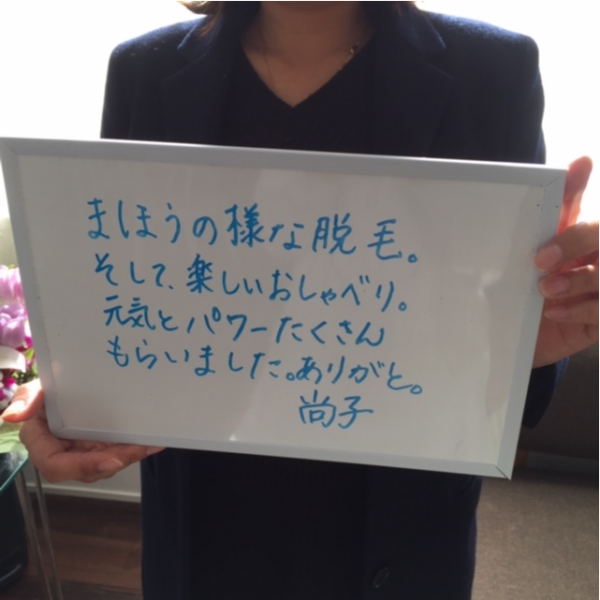 まほうの様な脱毛。
そして、楽しいおしゃべり。
元気とパワーたくさん
もらいました。ありがと。
尚子